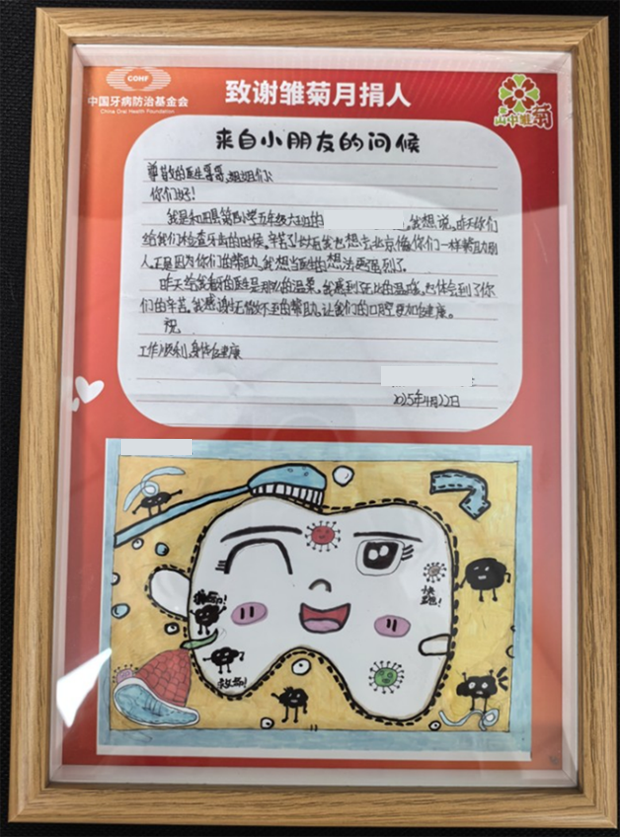 COHF
中国牙病防治基金会
China Oral Health Foundation
致谢雏菊月捐人
山中雏菊
来自小朋友的问候
尊敬的医生哥哥,姐姐们:
你们好!
我是和田县第 小学五年级大班的 ,我想说,昨天你们
给我们检查牙齿的时候,辛苦了!以后我也想去北京像你们一样帮助别
人,正是因为你们的帮助,我想当医生的想法更强烈了。
昨天给我看牙的医生是那么的温柔,我感到了无比的温暖,也体会到了你
们的辛苦,我感谢您们无微不至的帮助,让我们的口腔更加健康。
祝
工作顺利,身体健康
2025年4月22日
快逃!
救命!